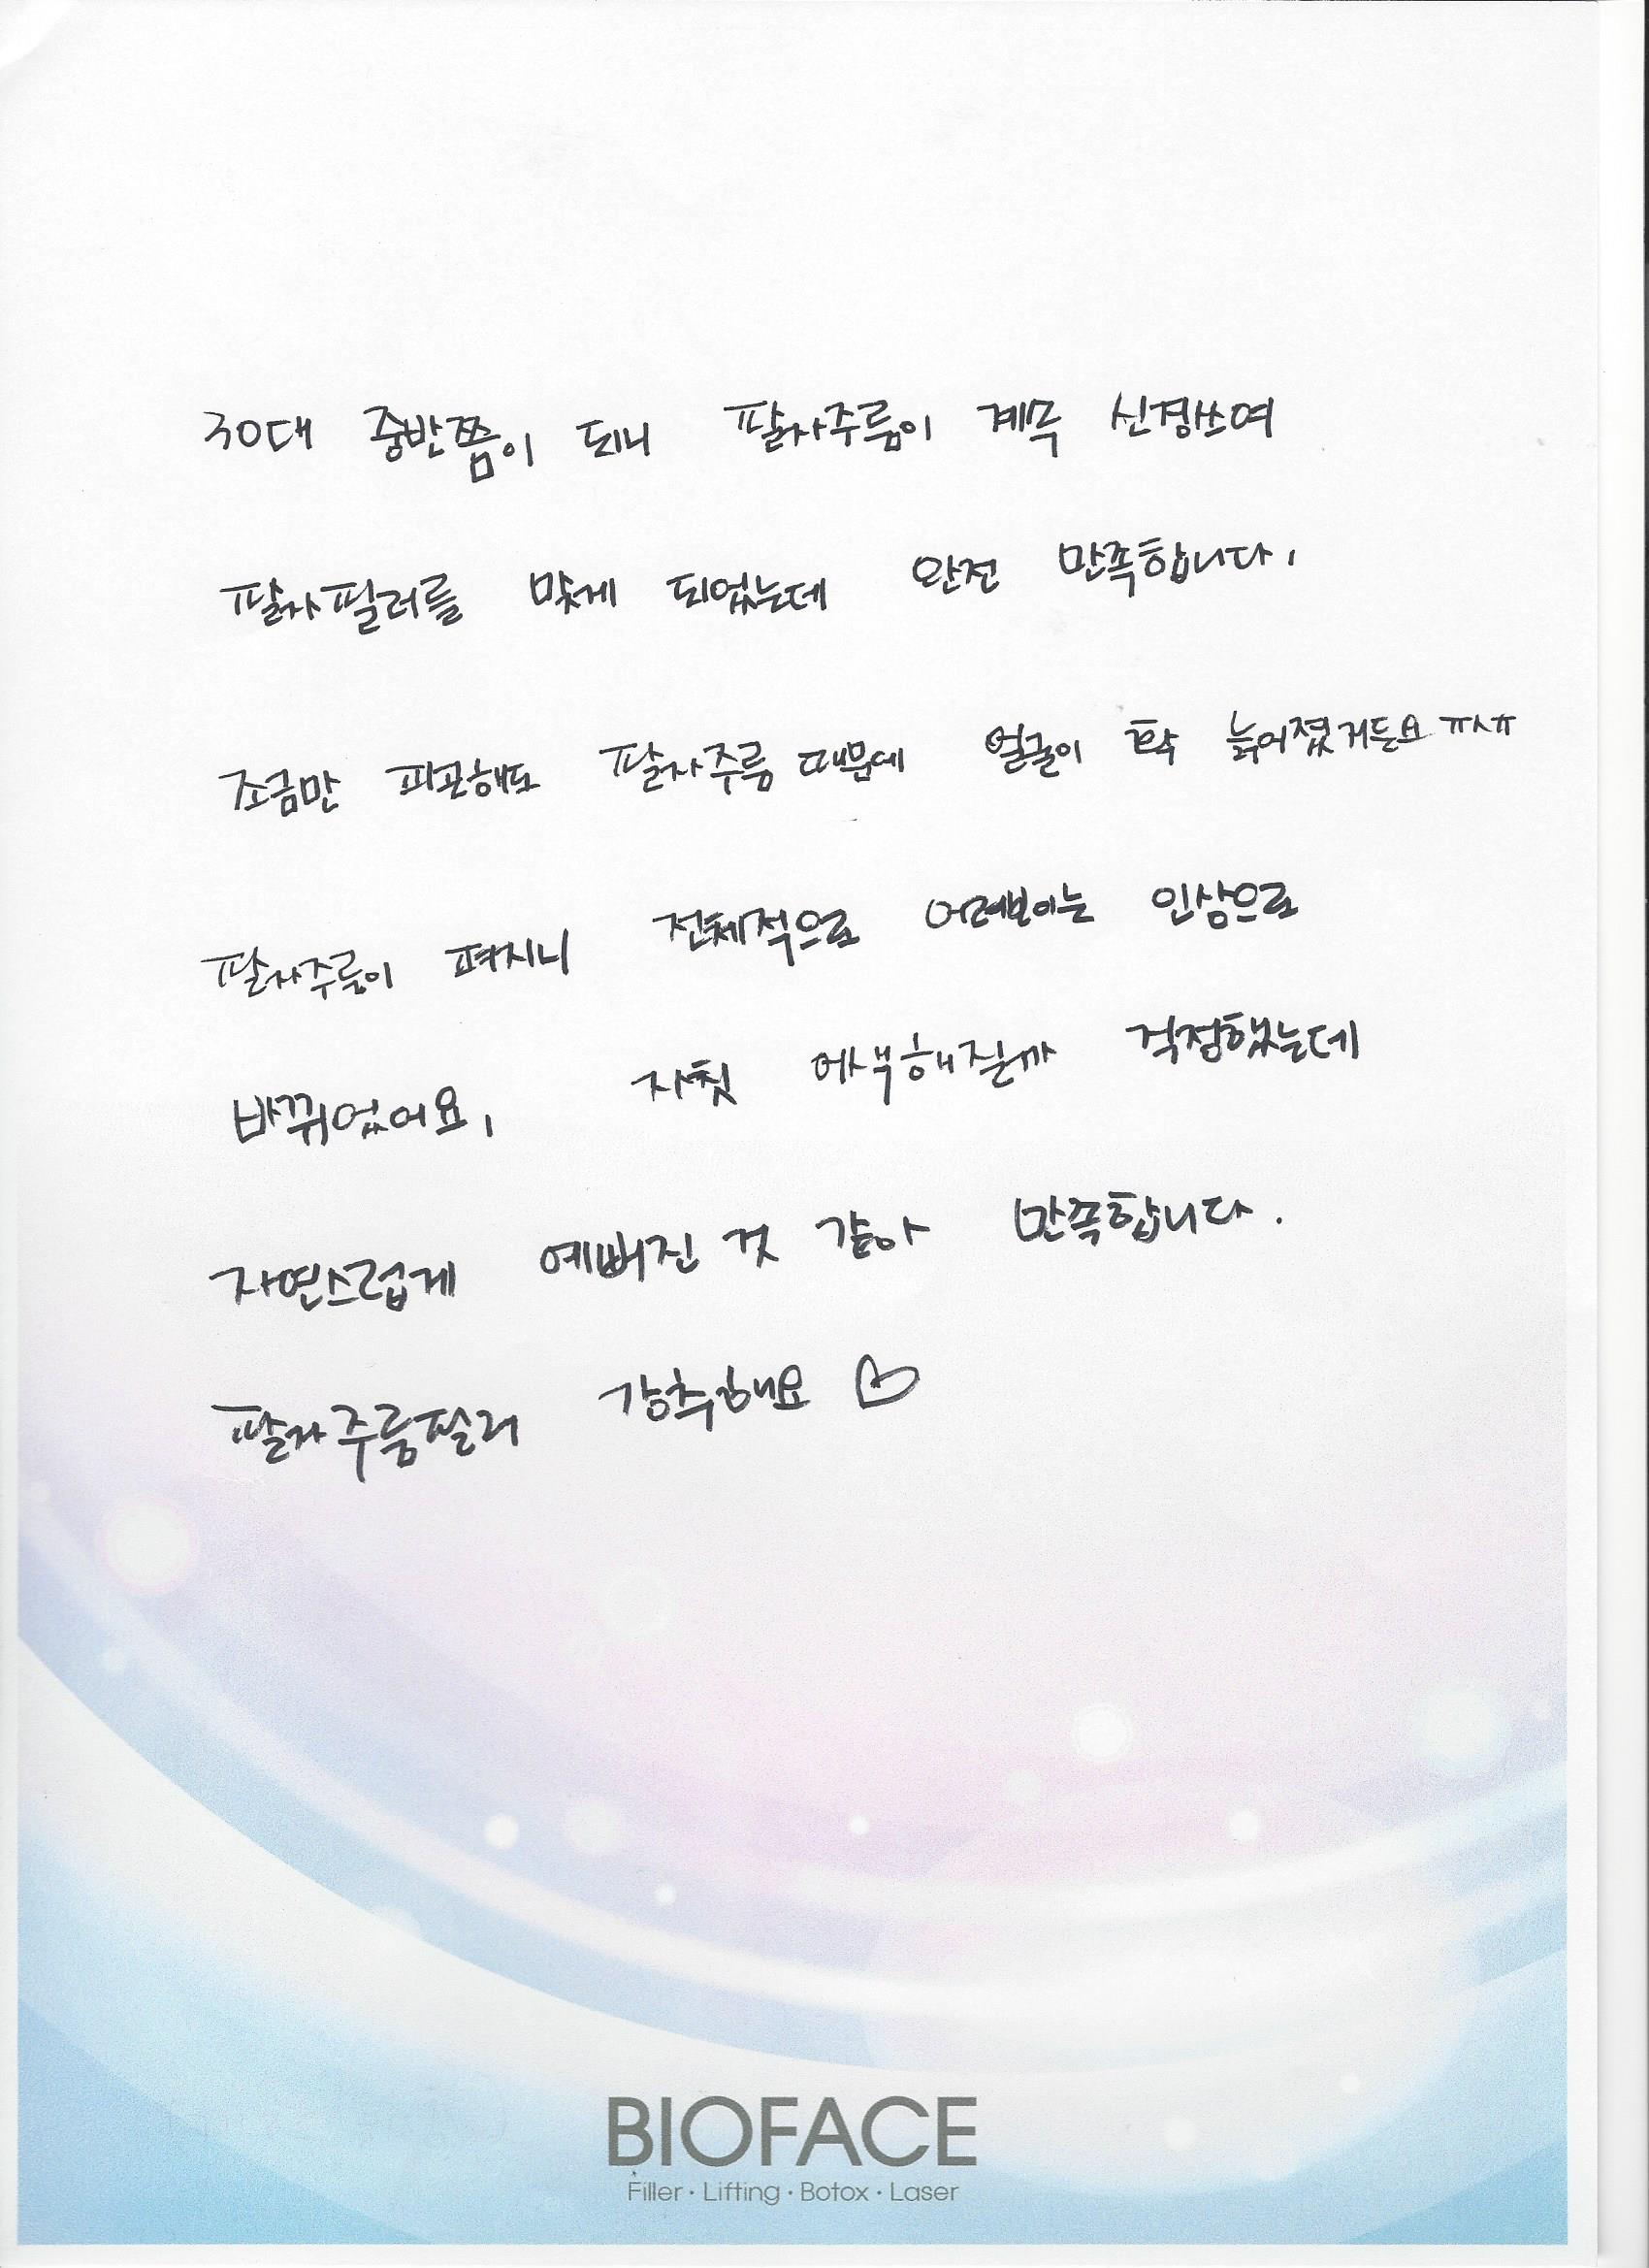 30대 중반쯤이 되니 팔자주름이 계속 신경쓰여
팔자필러를 맞게 되었는데 완전 만족합니다.
조금만 피곤해도 팔자주름 때문에 얼굴이 확 늙어졌거든요 ㅠㅅㅠ
팔자주름이 펴지니 전체적으로 어려보이는 인상으로
바뀌었어요, 자칫 어색해질까 걱정했는데
자연스럽게 예뻐진 것 같아 만족합니다.
팔자주름필러 강추해요 ♡
BIOFACE
Filler · Lifting · Botox · Laser